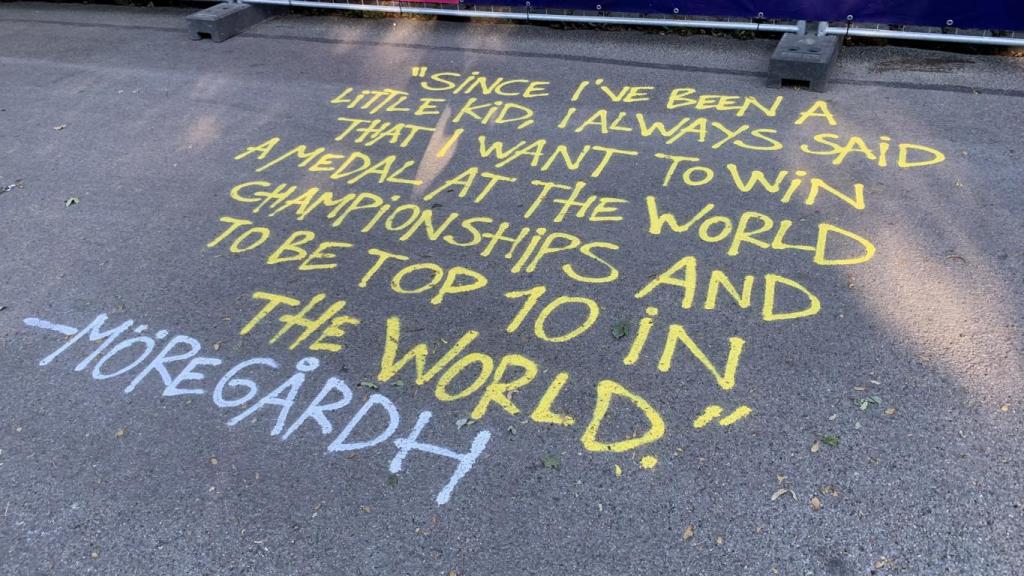 "SINCE I'VE BEEN A
LITTLE KID, I ALWAYS SAID
THAT I WANT TO WIN
A MEDAL AT THE WORLD
CHAMPIONSHIPS AND
TO BE TOP 10 IN
THE WORLD."
—MÖREGÅRDH